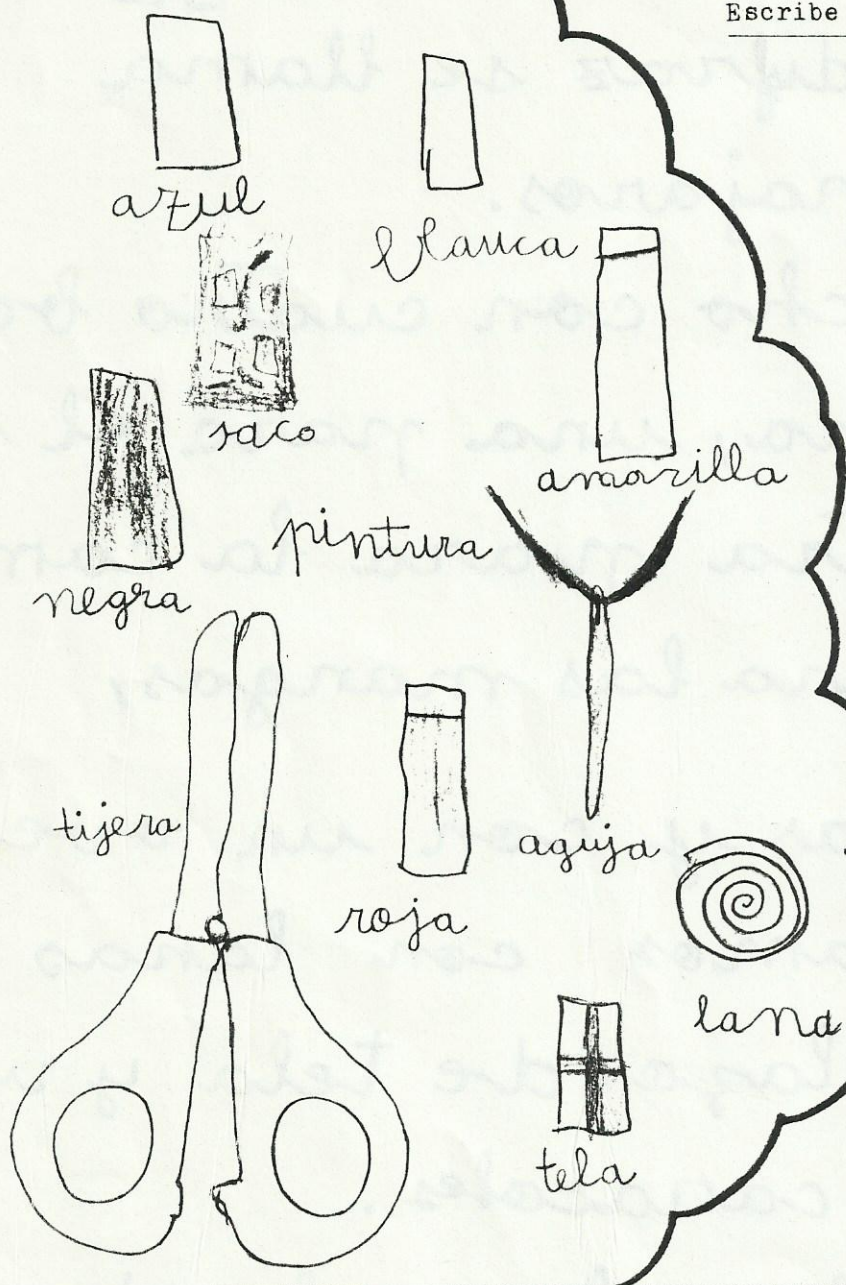 Escribe
azul
blanca
saco
amarilla
pintura
negra
tijera
roja
aguja
lana
tela